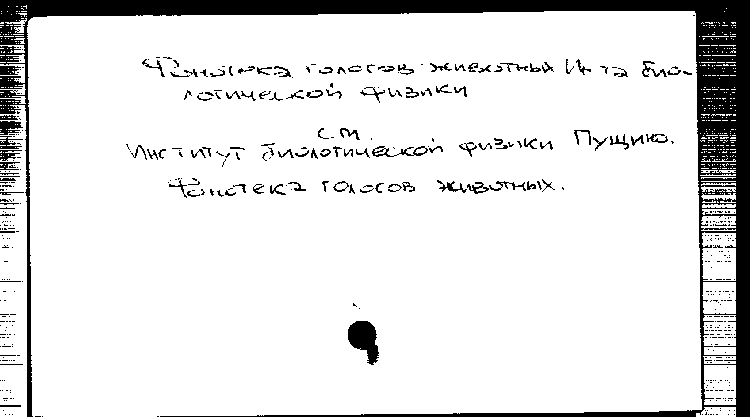 Фонотека голосов животных Ин-та био-
логической физики
см.
Институт биологической физики Пущино.
Фонотека голосов животных.